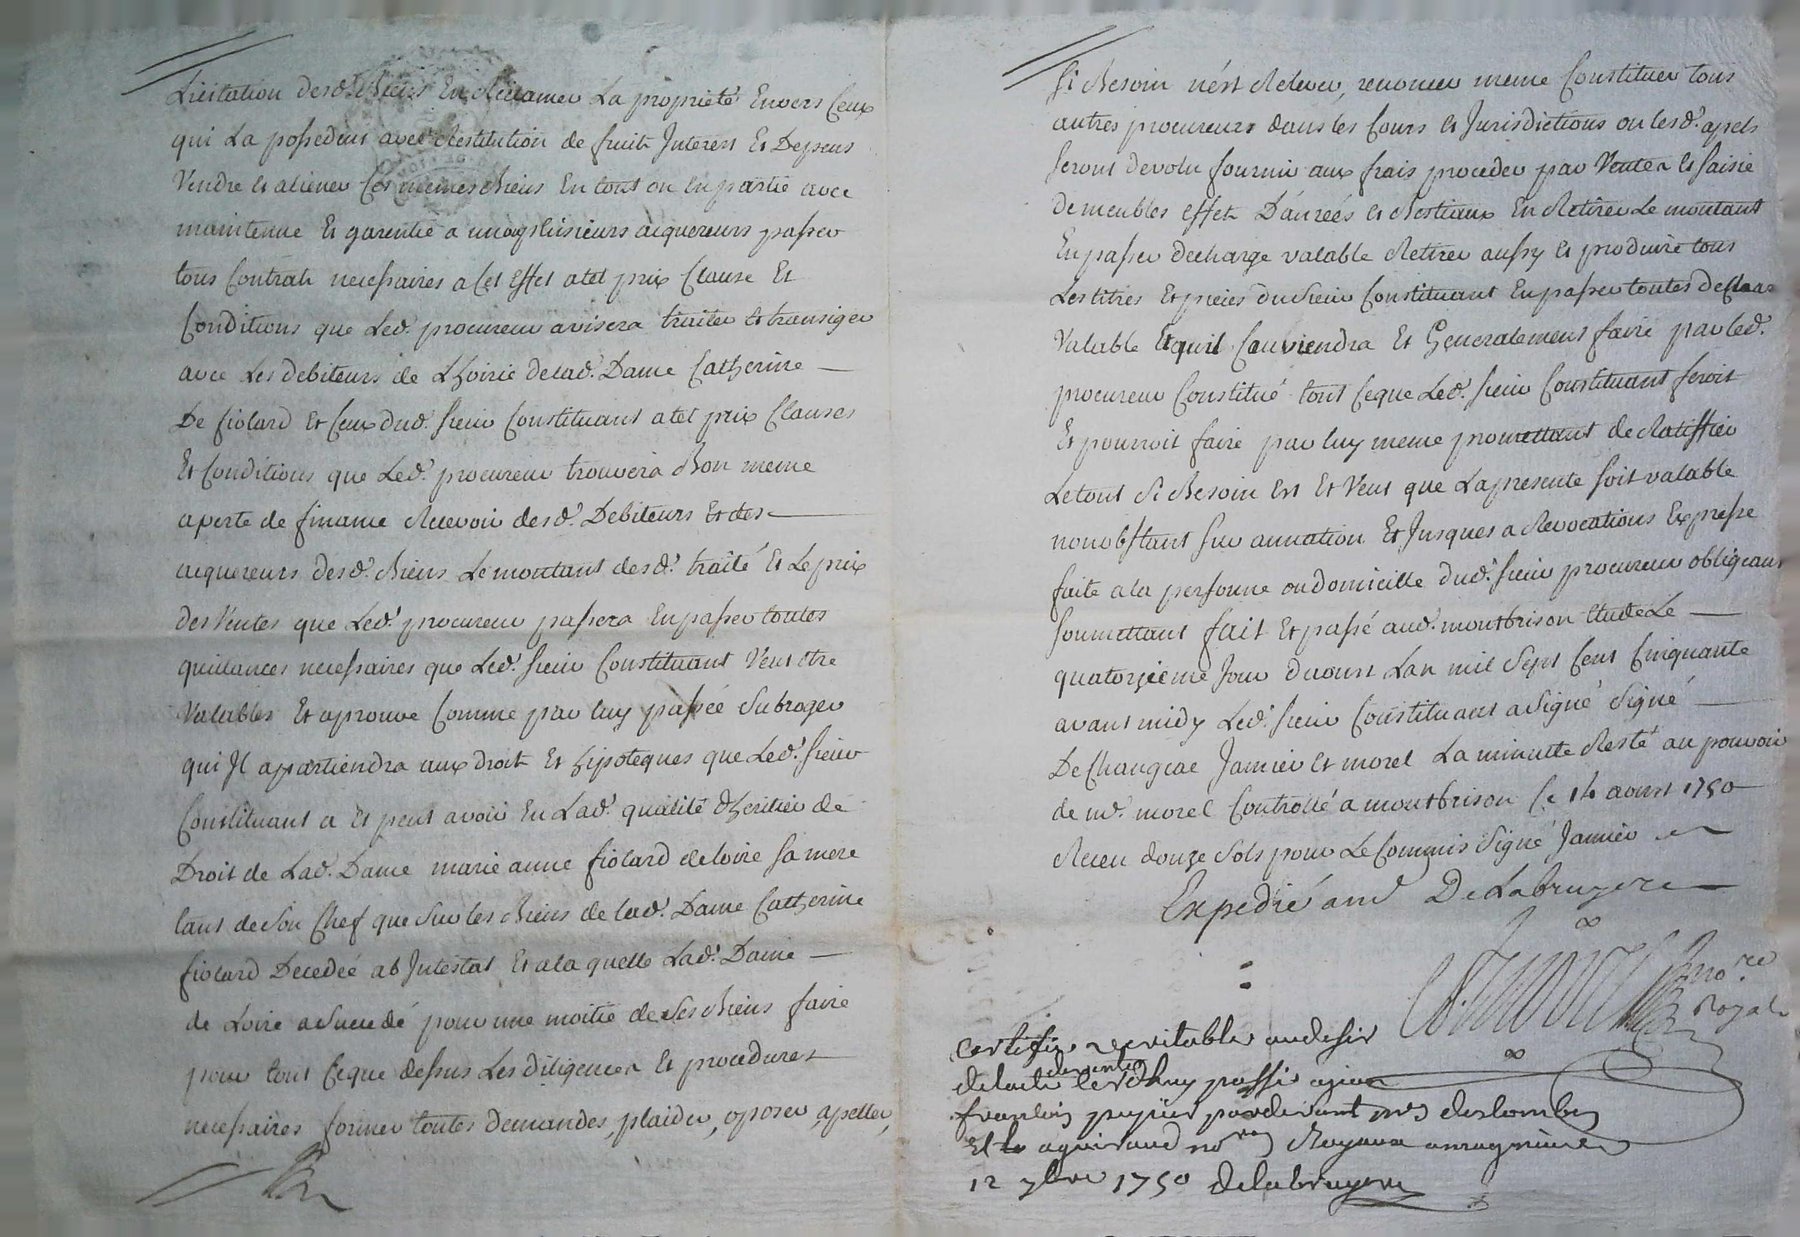 Licitation desd. Biens En Réclamer La proprieté Envers Ceux
qui La possedent avec Restitution de fruits Interest Et Depens
Vendre et aliener Ces memes Biens En tout ou En partie avec
maintenue Et garentie a un ou plusieurs acquereurs passer
tous Contrats necessaires a Cet Effet a tel prix Clause Et
Conditions que Led. procureur avisera traiter Et transiger
avec Les debiteurs de Lhoirie de lad. Dame Catherine
De fiolard Et Ceux dud. sieur Constituant a tel prix Clauses
Et Conditions que Led. procureur trouvera Bon meme
a perte de finance Recevoir desd. Debiteurs Et des
acquereurs desd. Biens Le montant desd. traité Et Le prix
des Ventes que Led. procureur passera En passer toutes
quittances necessaires que Led. sieur Constituant Veut être
Valables Et aprouve Comme par luy passée Subroger
qui Il apartiendra aux droits Et hipoteques que Led. sieur
Constituant a Et peut avoir En Lad. qualité d'heritier de
Droit de Lad. Dame marie anne fiolard de loire sa mere
tant de Son Chef que Sur les Biens de lad. Dame Catherine
fiolard Decedée ab Intestat Et a la quelle Lad. Dame
de Loire a Succedé pour une moitié de Ses Biens faire
pour tout Ceque dessus Les diligences Et procedures
necessaires former toutes demandes, plaider, oposer, apeller,
Si Besoin n'est Relever, renoncer meme Constituer tous
autres procureurs dans les Cours et Jurisdictions ou lesd. apels
seront devolu fournir aux frais proceder par Ventes et saisie
de meubles effets Danrées et Bestiaux En Retirer Le montant
En passer decharge valable Retirer aussy Et produire tous
Les titres Et pieces du sieur Constituant En passer toutes
Valable Et quil Conviendra Et Generalement faire par led.
procureur Constitué tout Ceque Led. sieur Constituant feroit
Et pourroit faire par luy meme promettant de Ratiffier
Le tout Si Besoin Est Et Veut que La presente soit valable
nonobstant sur annation Et Jusques a Revocations Expresse
faite a la personne ou domicille dud. sieur procureur obligeant
soumettant fait Et passé aud. montbrison Etude Le
quatorzieme Jour d'aoust Lan mil Sept Cent Cinquante
avant midy Led. sieur Constituant a Signé Signé
De Changeac Janier et morel La minutte Resté au pouvoir
de md. morel Controllé a montbrison Ce 14 aoust 1750
Receu douze Sols pour Le Commis Signé Janier
Expedié aud De Labruyere
no.re
Royal
Certiffie veritable au desir
de lacte de vente cejourdhuy passé
francois par devant
Et aguiraud Royaux
12 7bre 1750 delabruyere